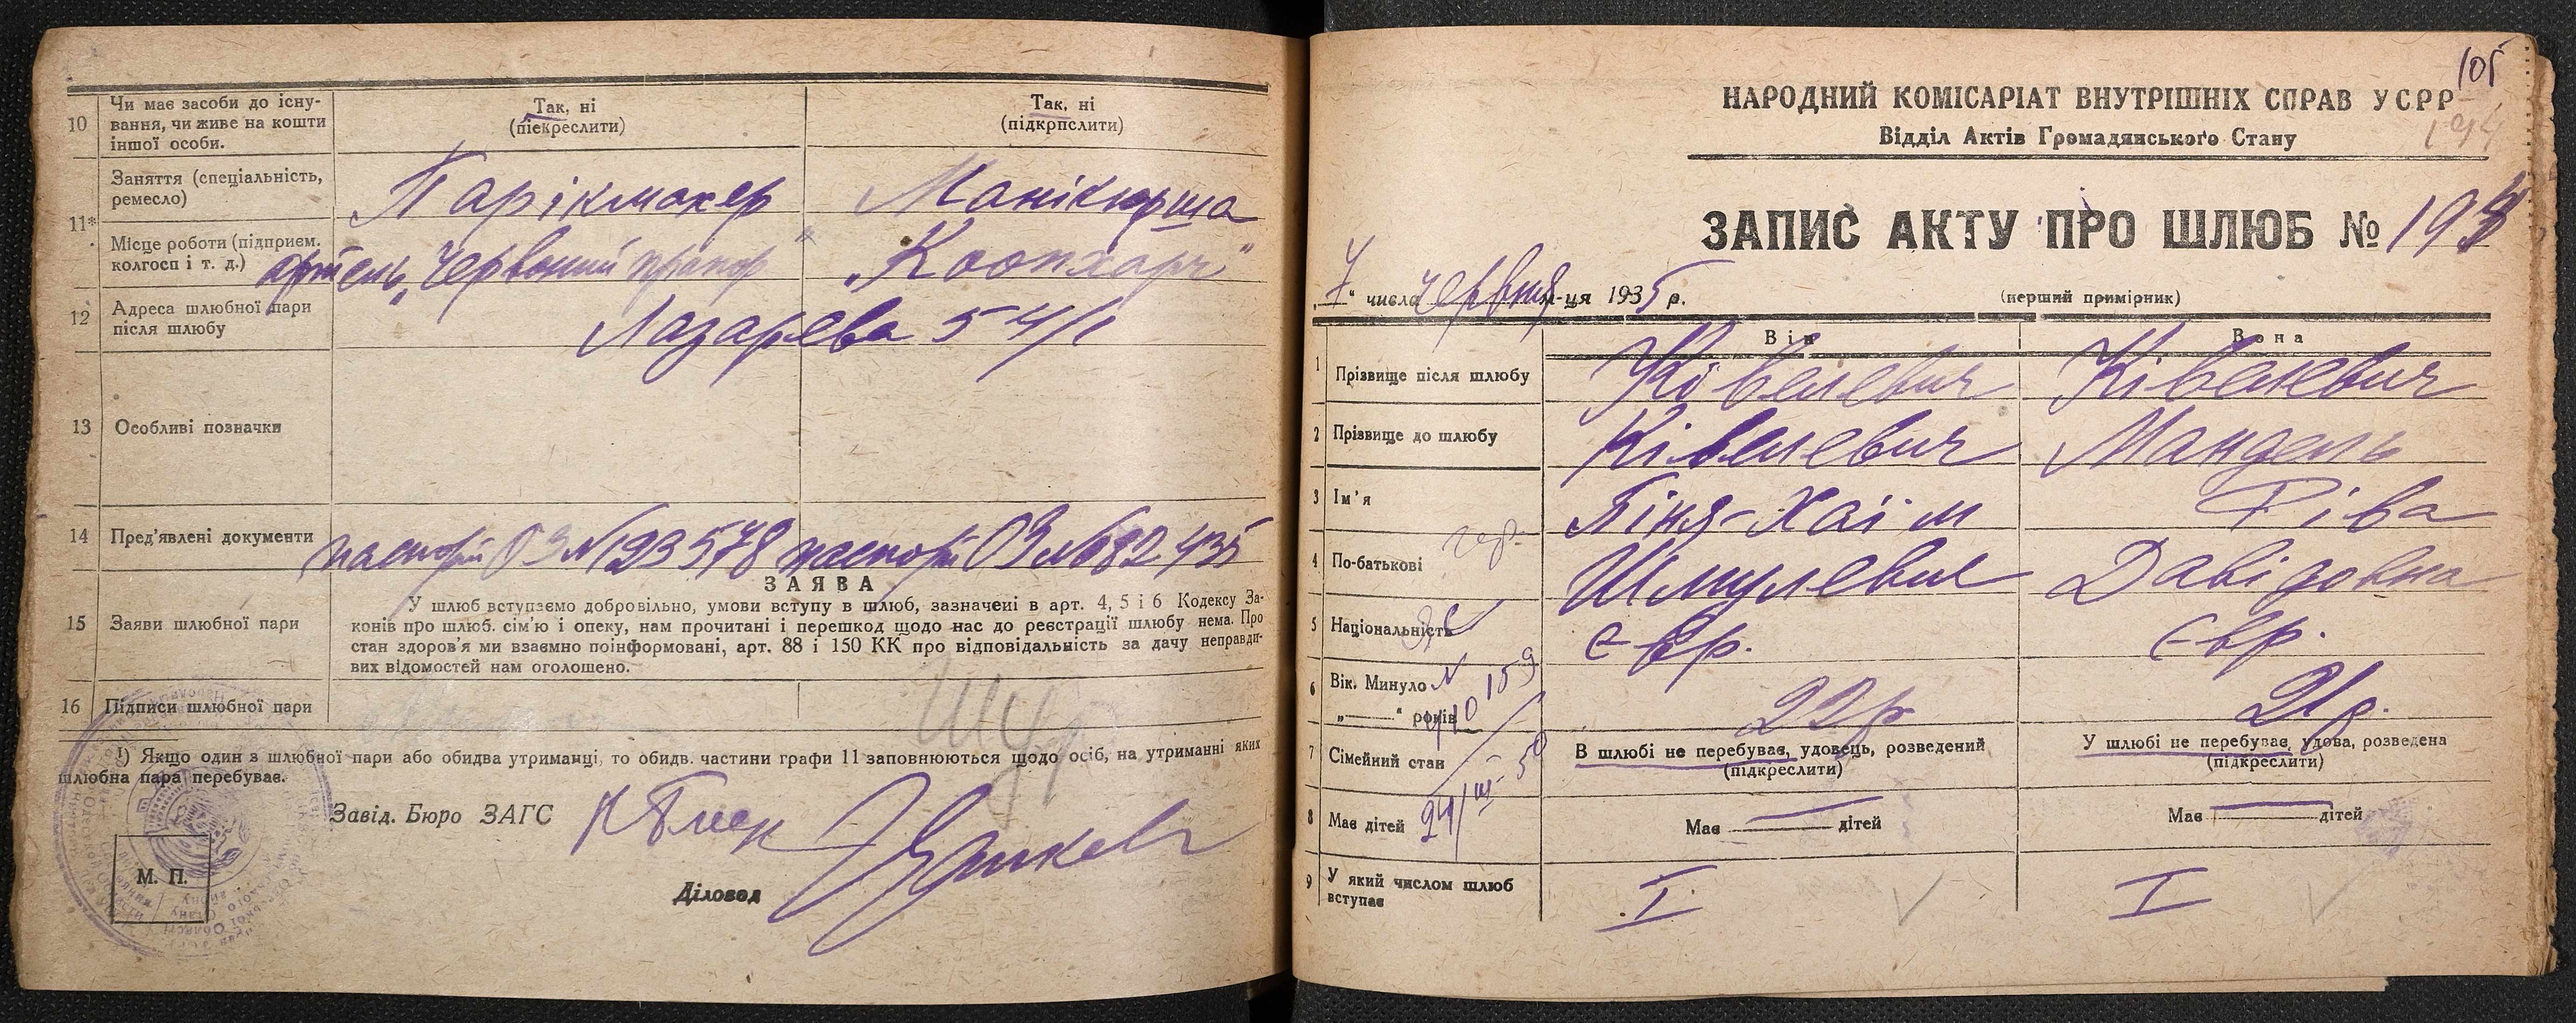 10 Чи має засоби до існу-
вання, чи живе на кошти
іншої особи.
Так, ні
(піекреслити)
Так, ні
(підкрпслити)
11*
Заняття (спеціальність,
ремесло)
Парікмахер
Манікюрша
Місце роботи (підприєм.
колгосп і т. д.)
артель „Червоний прапор"
„Коопхарч"
12 Адреса шлюбної пари
після шлюбу
Лазарева 54/1
13 Особливі позначки
14 Пред'явлені документи
паспорт ОЗ №193578
паспорт ОЗ №682435
ЗАЯВА
15 Заяви шлюбної пари
У шлюб вступаємо добровільно, умови вступу в шлюб, зазначені в арт. 4, 5 і 6 Кодексу За-
конів про шлюб. сім'ю і опеку, нам прочитані і перешкод щодо нас до реєстрації шлюбу нема. Про
стан здоров'я ми взаємно поінформовані, арт. 88 і 150 КК про відповідальність за дачу неправди-
вих відомостей нам оголошено.
16 Підписи шлюбної пари
¹) Якщо один з шлюбної пари або обидва утриманці, то обидв. частини графи 11 заповнюються щодо осіб, на утриманні яких
шлюбна пара перебуває.
Завід. Бюро ЗАГС
Діловод
М. П.
105
194
НАРОДНИЙ КОМІСАРІАТ ВНУТРІШНІХ СПРАВ УСРР
Відділ Актів Громадянського Стану
ЗАПИС АКТУ ПРО ШЛЮБ №
„7" числа червня м-ця 1935 р.
(перший примірник)
Він
Вона
1 Прізвище після шлюбу
Ківелевич
Ківелевич
2 Прізвище до шлюбу
Ківелевич
Мандель
3 Ім'я
Піня-Хаім
Ріва
4 По-батькові
Шмулевич
Давідовна
5 Національність
Євр.
Євр.
6 Вік. Минуло
„——" років
22 р
21 р.
7 Сімейний стан
В шлюбі не перебуває, удовець, розведений
(підкреслити)
У шлюбі не перебуває, удова, розведена
(підкреслити)
8 Має дітей
24/III-50
Має — дітей
Має — дітей
9 У який числом шлюб
вступає
I
I